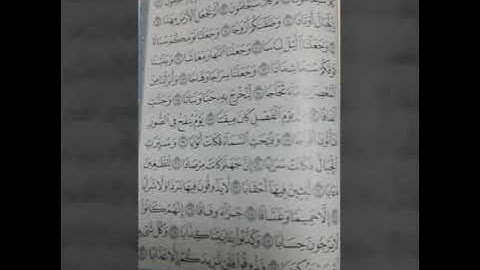 كَلَّا سَيَعْلَمُونَ
أَلَمْ نَجْعَلِ ٱلْأَرْضَ مِهَٰدًا
وَٱلْجِبَالَ أَوْتَادًا وَخَلَقْنَٰكُمْ أَزْوَٰجًا وَجَعَلْنَا نَوْمَكُمْ سُبَاتًا
وَجَعَلْنَا ٱلَّيْلَ لِبَاسًا وَجَعَلْنَا ٱلنَّهَارَ مَعَاشًا وَبَنَيْنَا
فَوْقَكُمْ سَبْعًا شِدَادًا وَجَعَلْنَا سِرَاجًا وَهَّاجًا وَأَنزَلْنَا مِنَ
ٱلْمُعْصِرَٰتِ مَآءً ثَجَّاجًا لِّنُخْرِجَ بِهِۦ حَبًّا وَنَبَاتًا وَجَنَّٰتٍ
أَلْفَافًا إِنَّ يَوْمَ ٱلْفَصْلِ كَانَ مِيقَٰتًا يَوْمَ يُنفَخُ فِى ٱلصُّورِ
فَتَأْتُونَ أَفْوَاجًا وَفُتِحَتِ ٱلسَّمَآءُ فَكَانَتْ أَبْوَٰبًا وَسُيِّرَتِ
ٱلْجِبَالُ فَكَانَتْ سَرَابًا إِنَّ جَهَنَّمَ كَانَتْ مِرْصَادًا لِّلطَّٰغِينَ
مَـَٔابًا لَّٰبِثِينَ فِيهَآ أَحْقَابًا لَّا يَذُوقُونَ فِيهَا بَرْدًا وَلَا شَرَابًا
إِلَّا حَمِيمًا وَغَسَّاقًا جَزَآءً وِفَاقًا إِنَّهُمْ كَانُوا۟
لَا يَرْجُونَ حِسَابًا وَكَذَّبُوا۟ بِـَٔايَٰتِنَا كِذَّابًا وَكُلَّ شَىْءٍ
فَذُوقُوا۟ فَلَن نَّزِيدَكُمْ إِلَّا عَذَابًا